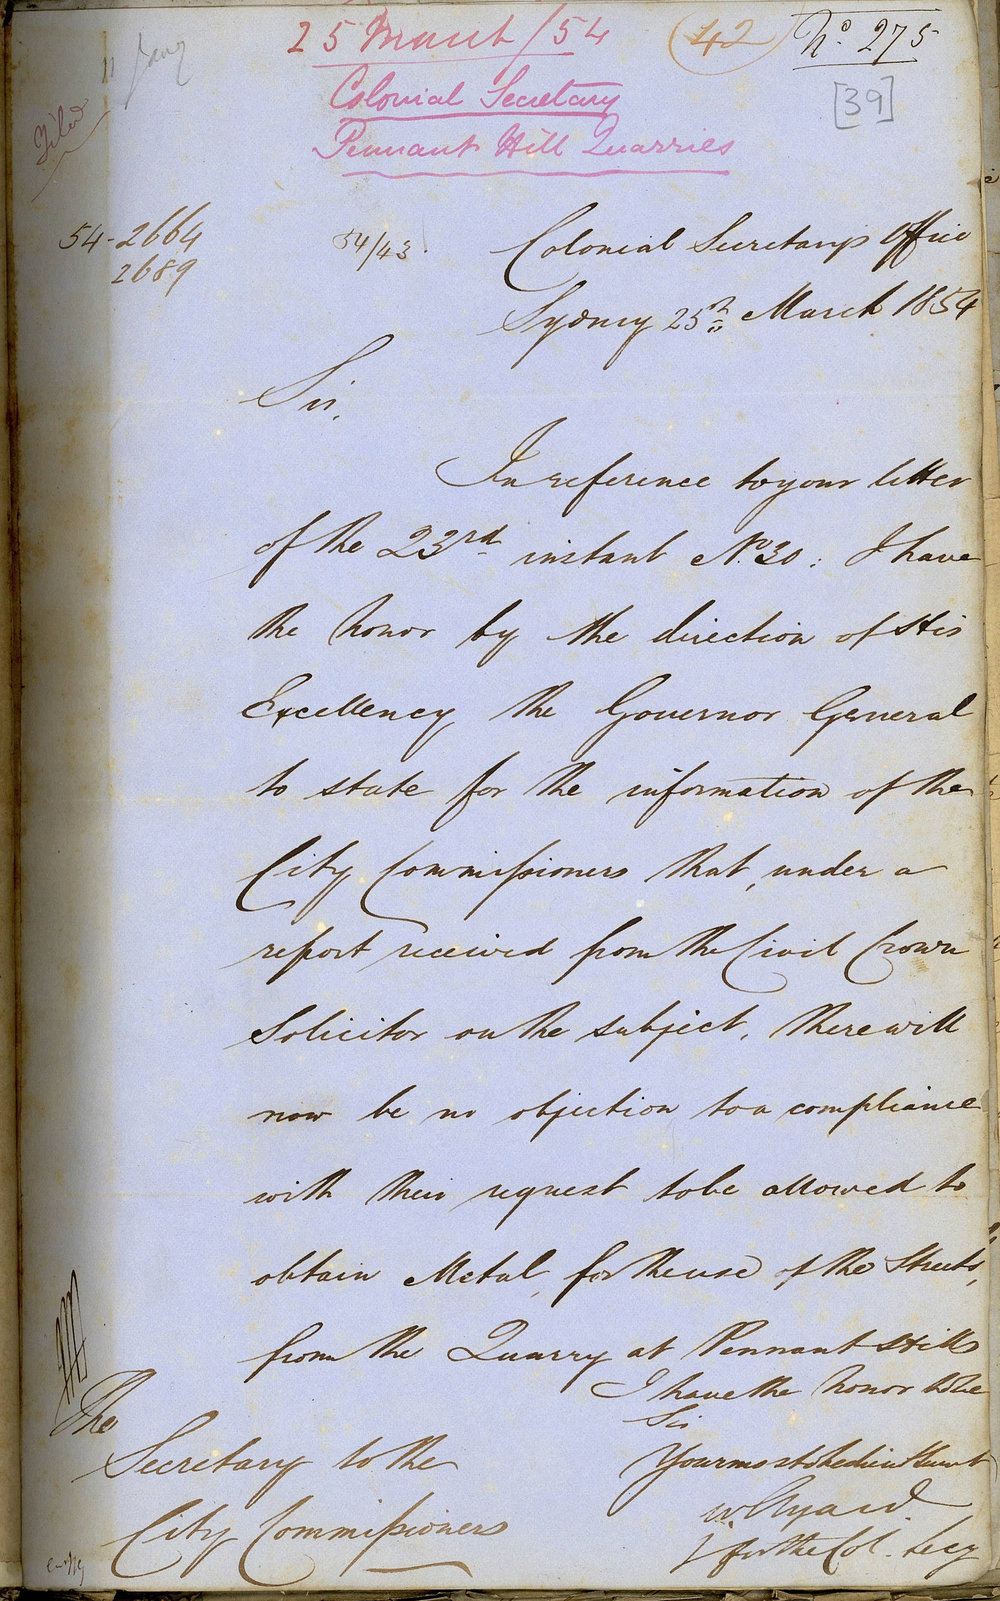 25 March/54
42
No 275
[39]
Colonial Secretary
Pennant Hill Quarries
Filed
54-2664
2689
54/43.
Colonial Secretarys Office
Sydney 25th March 1854
Sir,
In reference to your letter
of the 23rd instant No. 30: I have
the honor by the direction of His
Excellency the Governor General
to state for the information of the
City Commissioners that, under a
report received from the Civil Crown
Solicitor on the subject, there will
now be no objection to a compliance
with their request to be allowed to
obtain Metal, for the use of the Streets,
from the Quarry at Pennant Hills
I have the honor to be
Sir
Your most obedient Servt
W. Elyard
for the Col. Secy
The
Secretary to the
City Commissioners